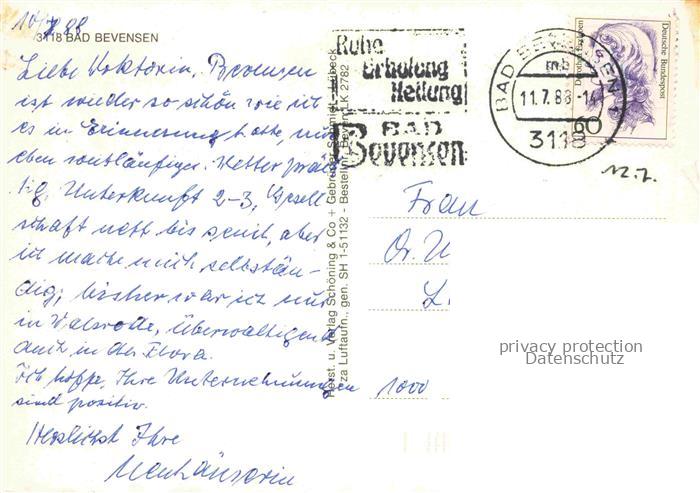 10/7 88
3118 BAD BEVENSEN
Liebe Doktorin, Bevensen
ist wieder so schön wie ich
es in Erinnerung hatte, nur
eben weitläufiger. Wetter präch
tig, Unterkunft 2-3, Gesell
schaft nett bis senil, aber
ich mache mich selbstän-
dig, bisher war ich nur
in Walsrode, überwältigend
auch in der Flora.
Ich hoffe, Ihre Unternehmungen
sind positiv.
Herzlichst Ihre
Herst. u. Verlag Schöning & Co + Gebrüder Schmidt, Lübeck
za Luftaufn., gen. SH 1-51132 - Bestellnr. Beven LK 2782
Ruhe
Erholung
Heilung
BAD
Bevensen
BAD BEVENSEN 1
mb
11.7.88-14
3118
Deutsche Bundespost
60
12.7.
Frau
Dr. U
L.
1000
privacy protection
Datenschutz